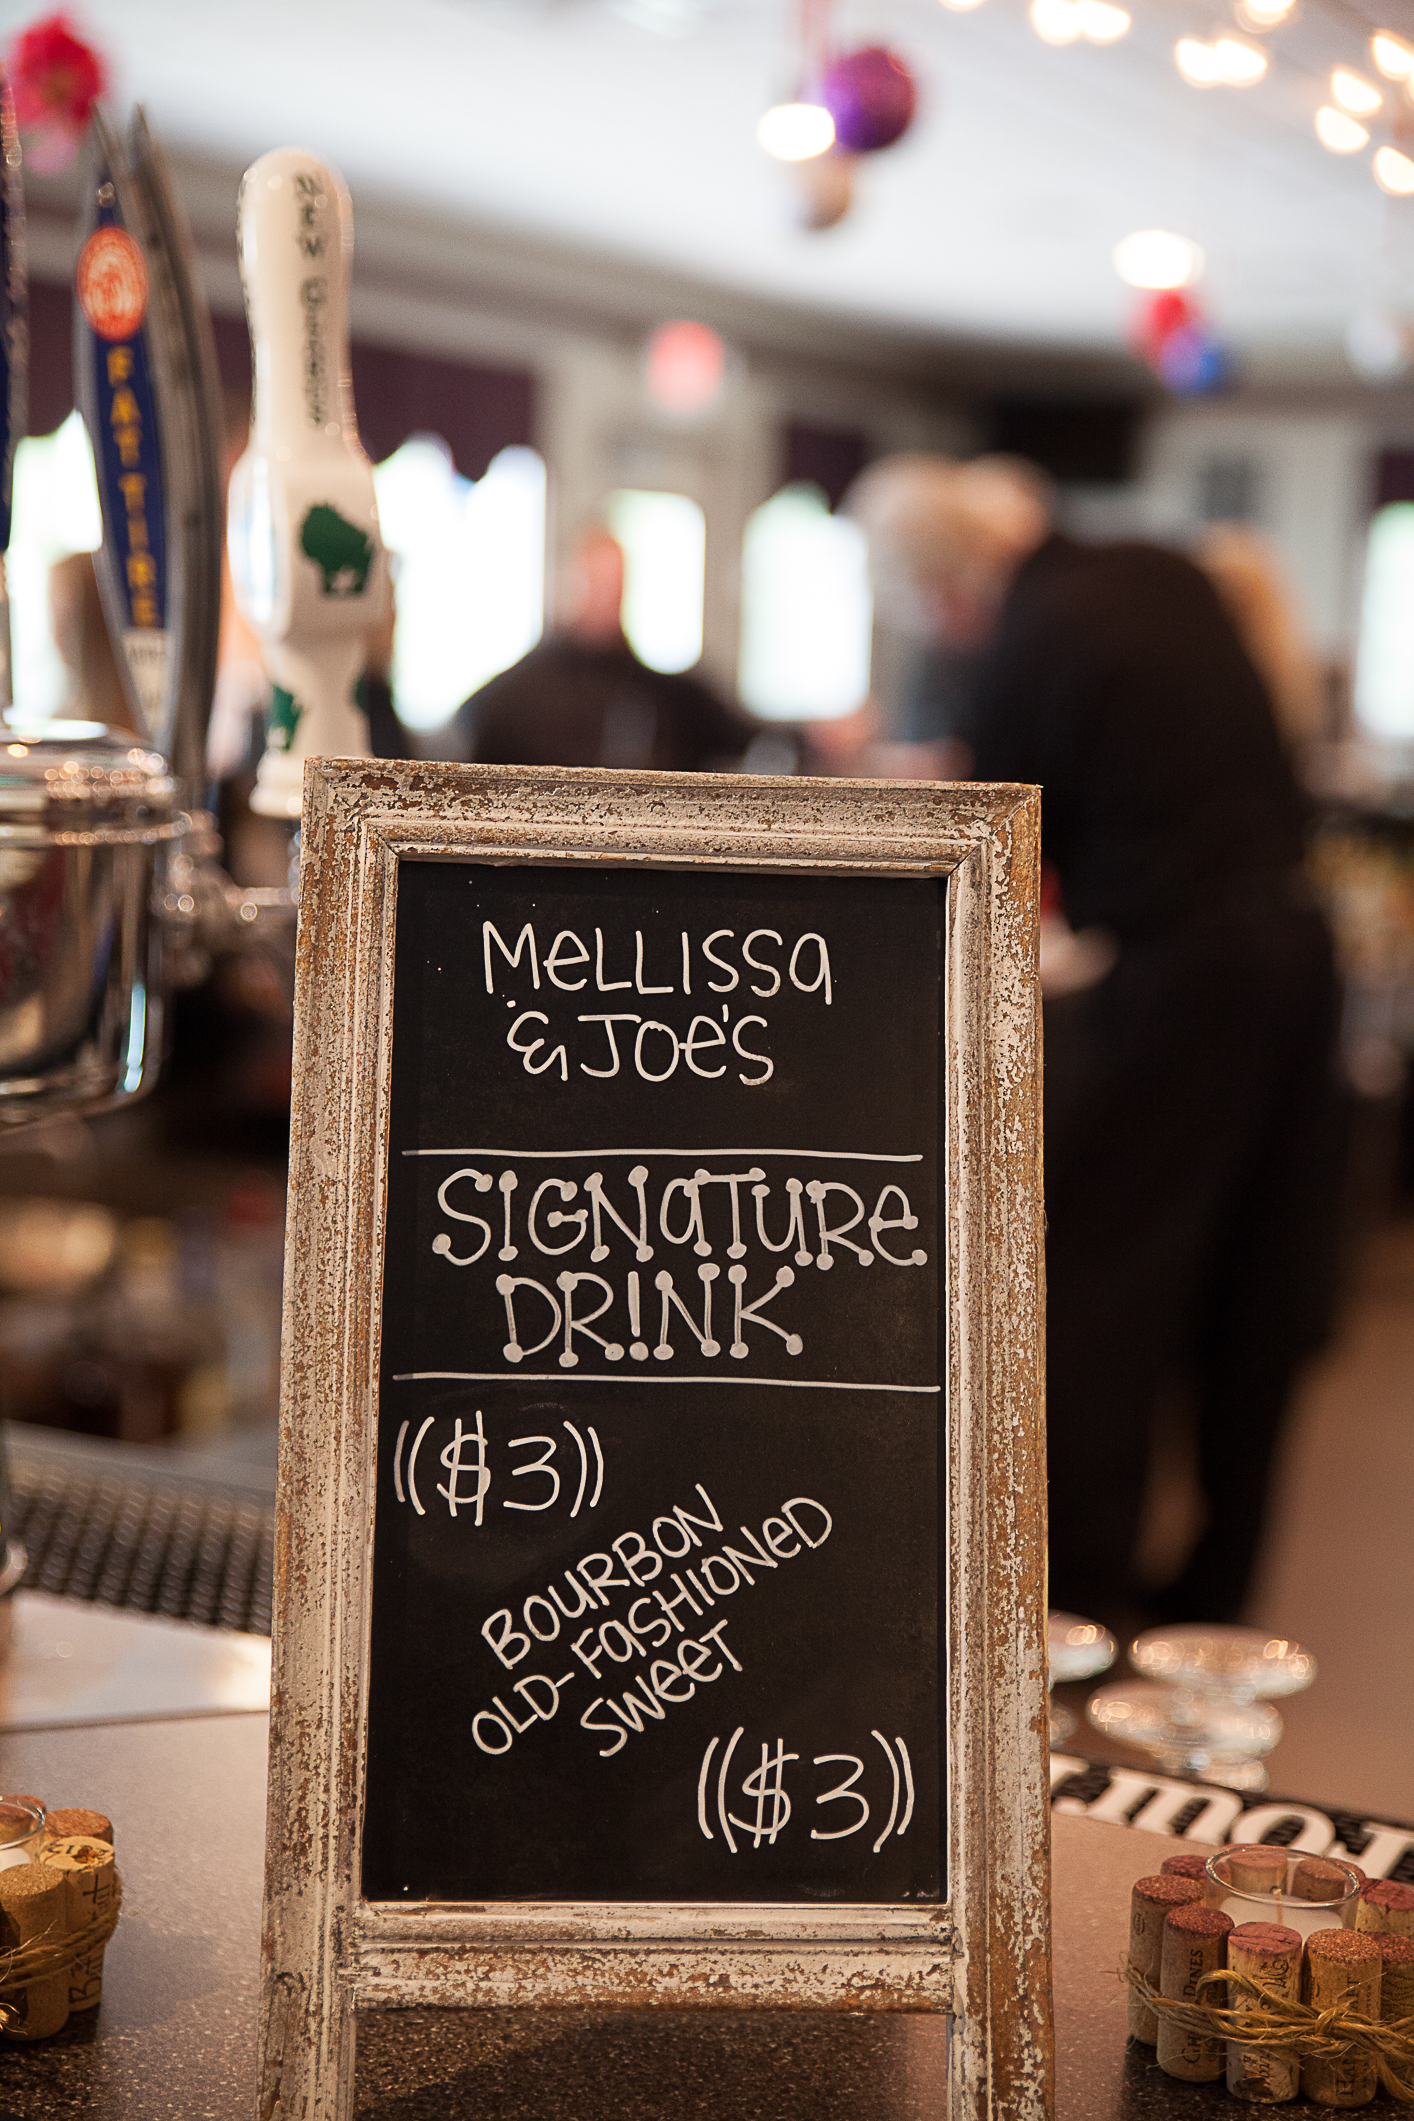 MeLLISSa
& JOe's
SIGNaTURe
DR!NK
(($3))
BOURBON
OLD-FaSHIONeD
SWeeT
(($3))
NEW GLARUS
FAT TIRE